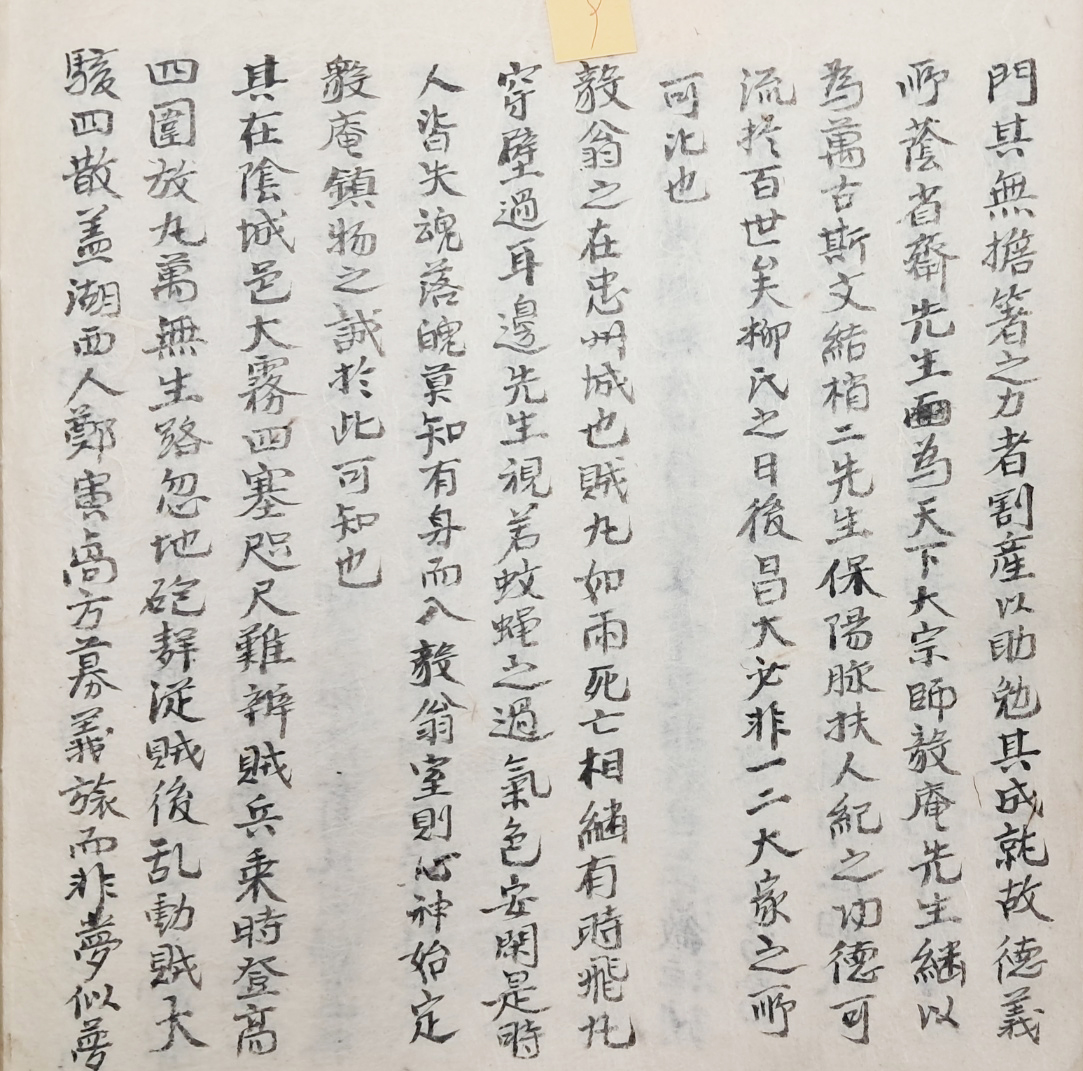 門其無擔箸之力者割産以助勉其成就故德義
所蔭省齋先生爲天下大宗師毅庵先生繼以
為萬古斯文結梢二先生保陽脉扶人紀之功德可
流於百世矣柳氏之日後昌大必非一二大家之所
可比也
毅翁之在忠州城也賊丸如雨死亡相繼有時飛丸
穿壁過耳邊先生視若蚊蝇之過氣色安閑是時
人皆失魂落魄莫知有身而入毅翁室則心神始定
毅庵鎮物之誠於此可知也
其在陰城邑大霧四塞咫尺難辨賊兵乗時登高
四圍放丸萬無生路忽地砲聲從賊後乱動賊大
駭四散盖湖西人鄭寅卨方募義旅而非夢似夢